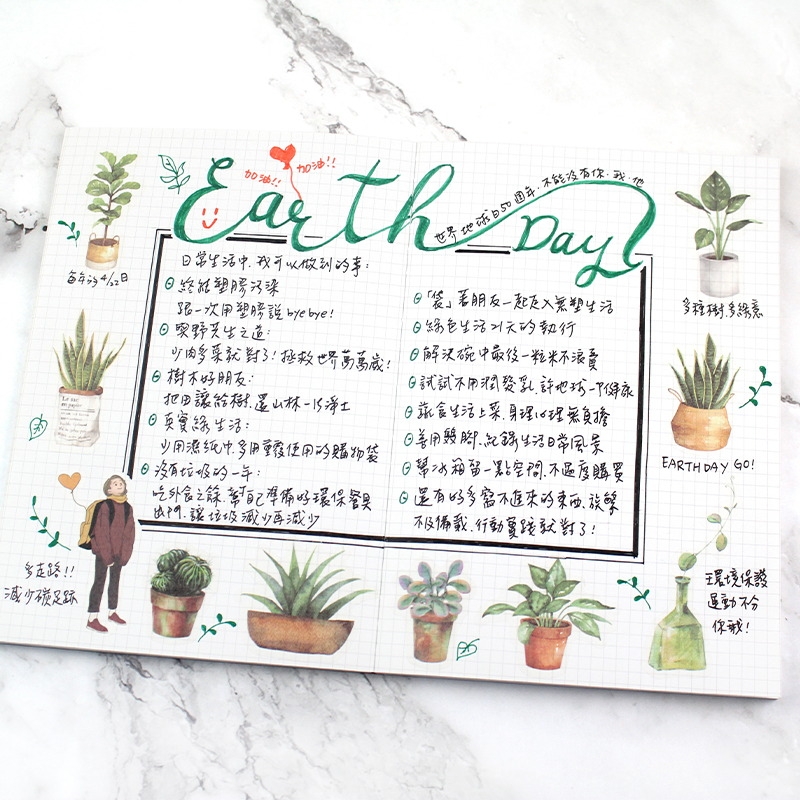 加油!!
加油!!
Earth Day
世界地球日50週年.不能沒有你.我.他
每年的4/22日
日常生活中,我可以做到的事:
終結塑膠污染
跟一次用塑膠說byebye!
索野芜生之道:
少肉多菜就對了!拯救世界萬萬歲!
樹木好朋友:
把田讓給樹.還山林一片淨土
真實綠生活:
少用濕紙巾.多用重覆使用的購物袋
沒有垃圾的一年:
吃外食之餘.幫自己準備好環保餐具
出門.讓垃圾減少再減少
「袋」著朋友一起走入無塑生活
綠色生活以天的執行
解決碗中最後一粒米不浪費
試試不用潤髮乳.許地球一個綠
蔬食生活上菜.身理心理無負擔
善用雙腳.紀錄生活日常風景
幫冰箱留一點空間.不過度購買
還有好多寫不進來的東西.族繁
不及備載.行動實踐就對了!
多種樹.多綠意
EARTHDAY GO!
Le sac
en papier
多走路!!
減少碳足跡
環境保護
運動不分
你我!